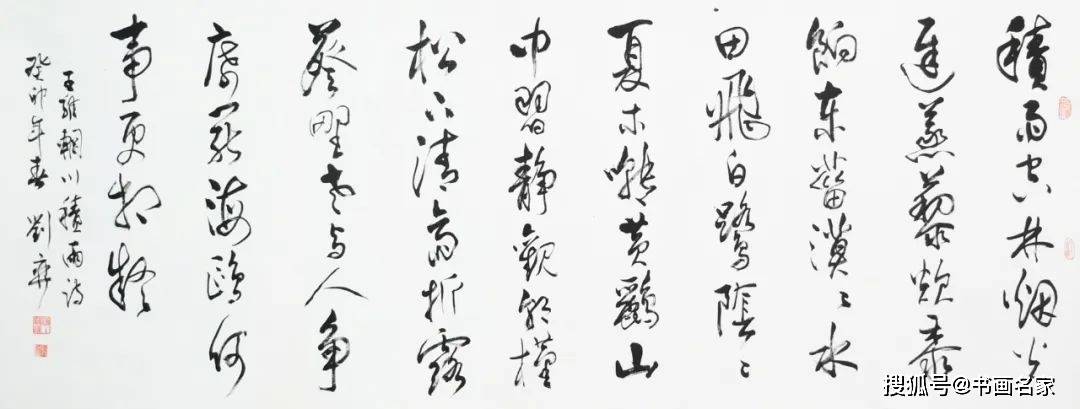 積雨空林烟火
遲蒸藜炊黍
餉東菑漠〻水
田飛白鷺陰〻
夏木囀黄鸝山
中習靜觀朝槿
松下清齋折露
葵野老与人争
席罷海鷗何
事更相疑
王維輞川積雨詩
癸卯年春 劉
搜狐号@书画名家